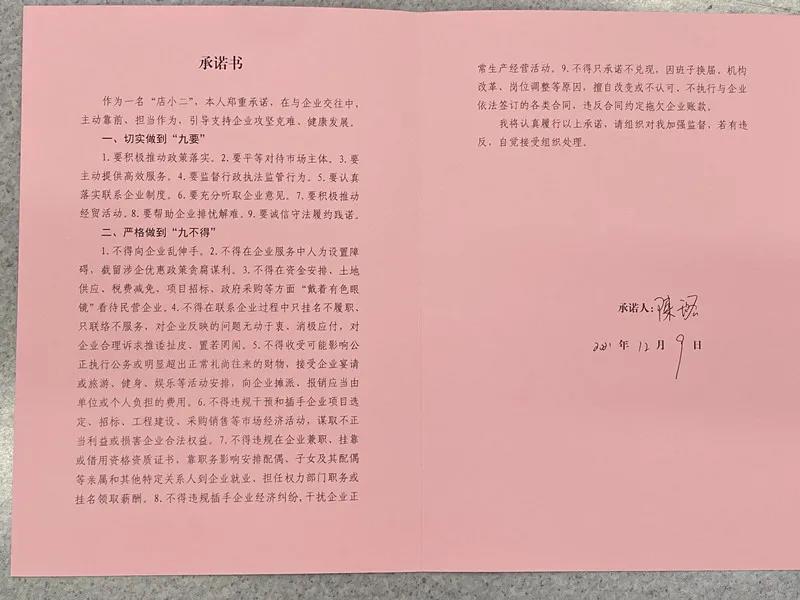 承诺书
作为一名“店小二”，本人郑重承诺，在与企业交往中，
主动靠前、担当作为，引导支持企业攻坚克难、健康发展。
一、切实做到“九要”
1.要积极推动政策落实。2.要平等对待市场主体。3.要
主动提供高效服务。4.要监督行政执法监管行为。5.要认真
落实联系企业制度。6.要充分听取企业意见。7.要积极推动
经贸活动。8.要帮助企业排忧解难。9.要诚信守法履约践诺。
二、严格做到“九不得”
1.不得向企业乱伸手。2.不得在企业服务中人为设置障
碍，截留涉企优惠政策贪腐谋利。3.不得在资金安排、土地
供应、税费减免、项目招标、政府采购等方面“戴着有色眼
镜”看待民营企业。4.不得在联系企业过程中只挂名不履职、
只联络不服务，对企业反映的问题无动于衷、消极应付，对
企业合理诉求推诿扯皮、置若罔闻。5.不得收受可能影响公
正执行公务或明显超出正常礼尚往来的财物，接受企业宴请
或旅游、健身、娱乐等活动安排，向企业摊派、报销应当由
单位或个人负担的费用。6.不得违规干预和插手企业项目选
定、招标、工程建设、采购销售等市场经济活动，谋取不正
当利益或损害企业合法权益。7.不得违规在企业兼职、挂靠
或借用资格资质证书，靠职务影响安排配偶、子女及其配偶
等亲属和其他特定关系人到企业就业、担任权力部门职务或
挂名领取薪酬。8.不得违规插手企业经济纠纷，干扰企业正
常生产经营活动。9.不得只承诺不兑现，因班子换届、机构
改革、岗位调整等原因，擅自改变或不认可、不执行与企业
依法签订的各类合同，违反合同约定拖欠企业账款。
我将认真履行以上承诺，请组织对我加强监督，若有违
反，自觉接受组织处理。
承诺人：陈
2021 年 12 月 9 日